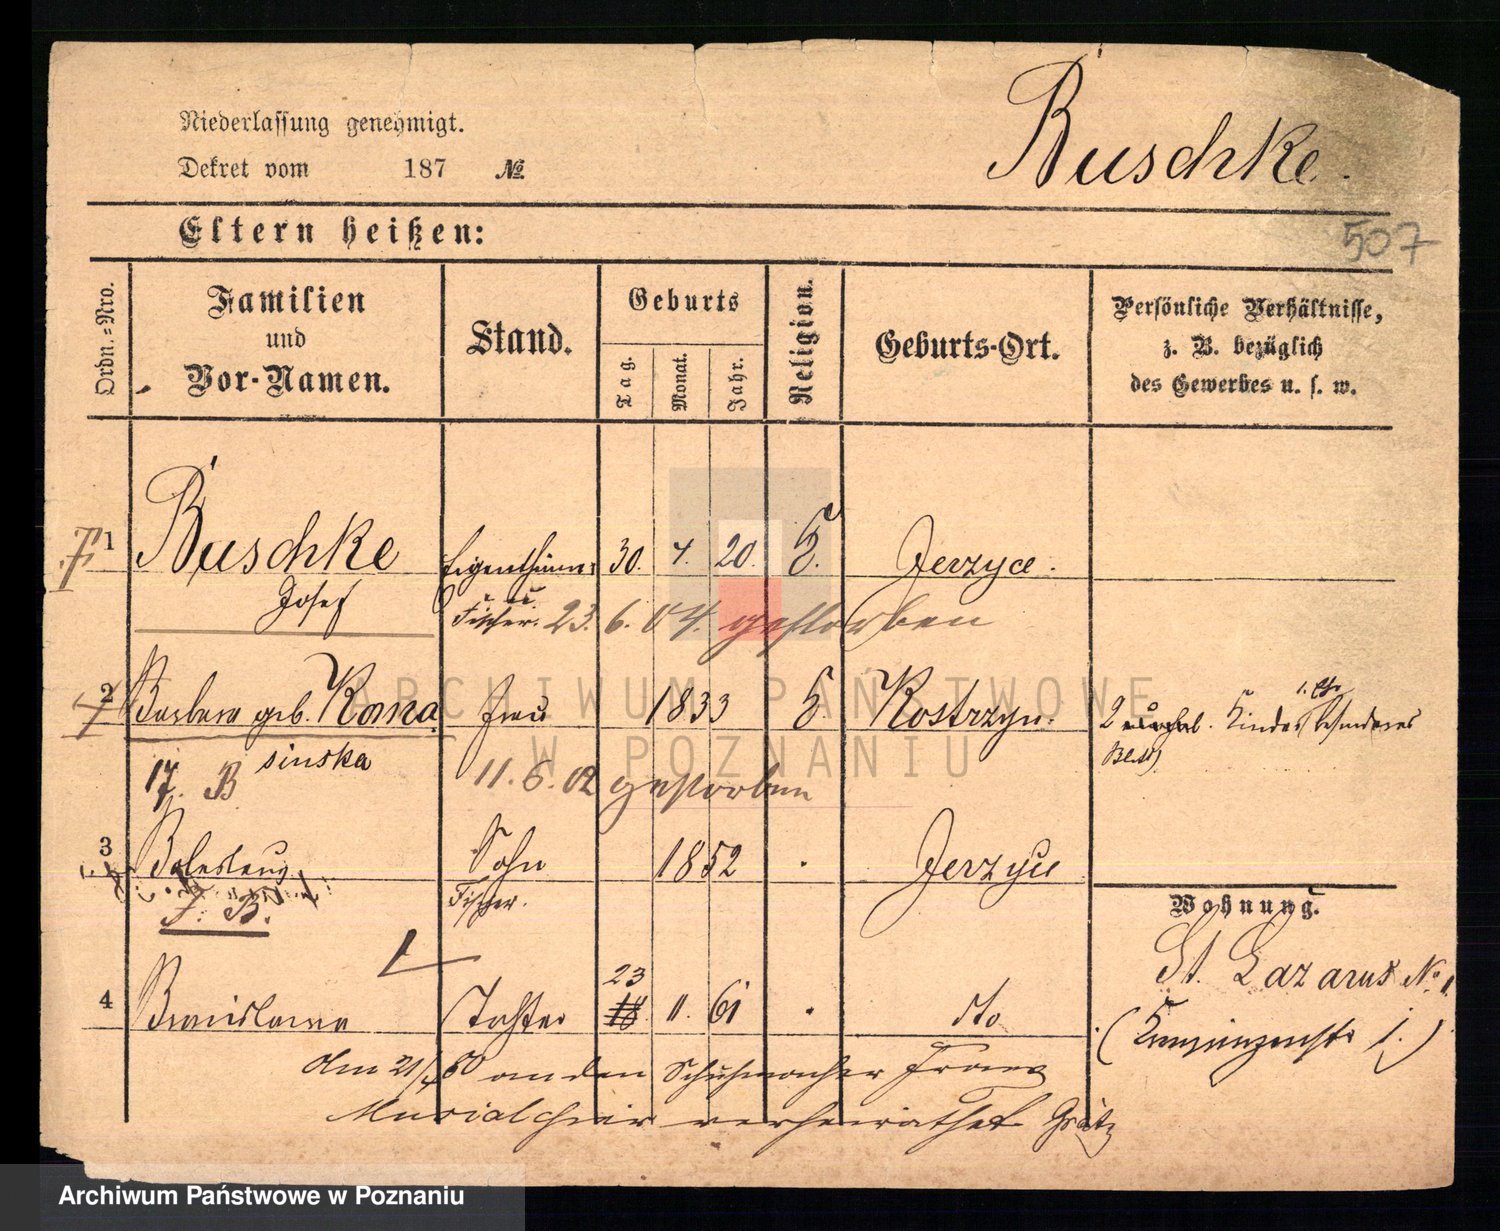 Niederlassung genehmigt.
Buschke.
Dekret vom 187 №
Eltern heißen:
507
Ordn.=Nro.
Familien
und
Vor-Namen.
Stand.
Geburts
Tag.
Monat.
Jahr.
Religion.
Geburts-Ort.
Persönliche Verhältnisse,
z. B. bezüglich
des Gewerbes u. s. w.
1 Buschke Eigenthümer 30. 4. 20. Jerzyce.
Josef u. Fischer. 23. 6. 04. gestorben
2 Barbara geb. Koma Frau 1833 Kostrzyn. 2 Kinder besonderes
sinska Blatt
17. B 11. 6. 02 gestorben
3 Boleslaus Sohn 1852 Jerzyce
J. B. Fischer.
Wohnung.
St. Lazarus No 1
4 Bronislawa Tochter 23 18 11. 61 dto
( 1.)
Am 21/ 80 an den Schuhmacher Franz
hier verheirathet. Grätz
ARCHIWUM PAŃSTWOWE
W POZNANIU
Archiwum Państwowe w Poznaniu